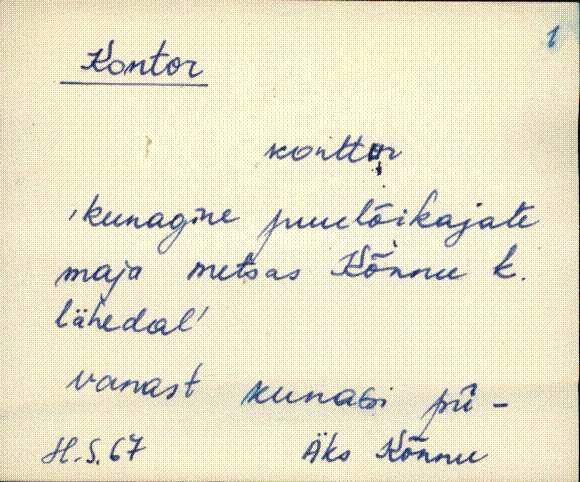 1
Kontor
konttor
'kunagine puulõikajate
maja metsas Kõnnu k.
lähedal'
vanast kunassi pū-
H.S.67 Äks Kõnnu